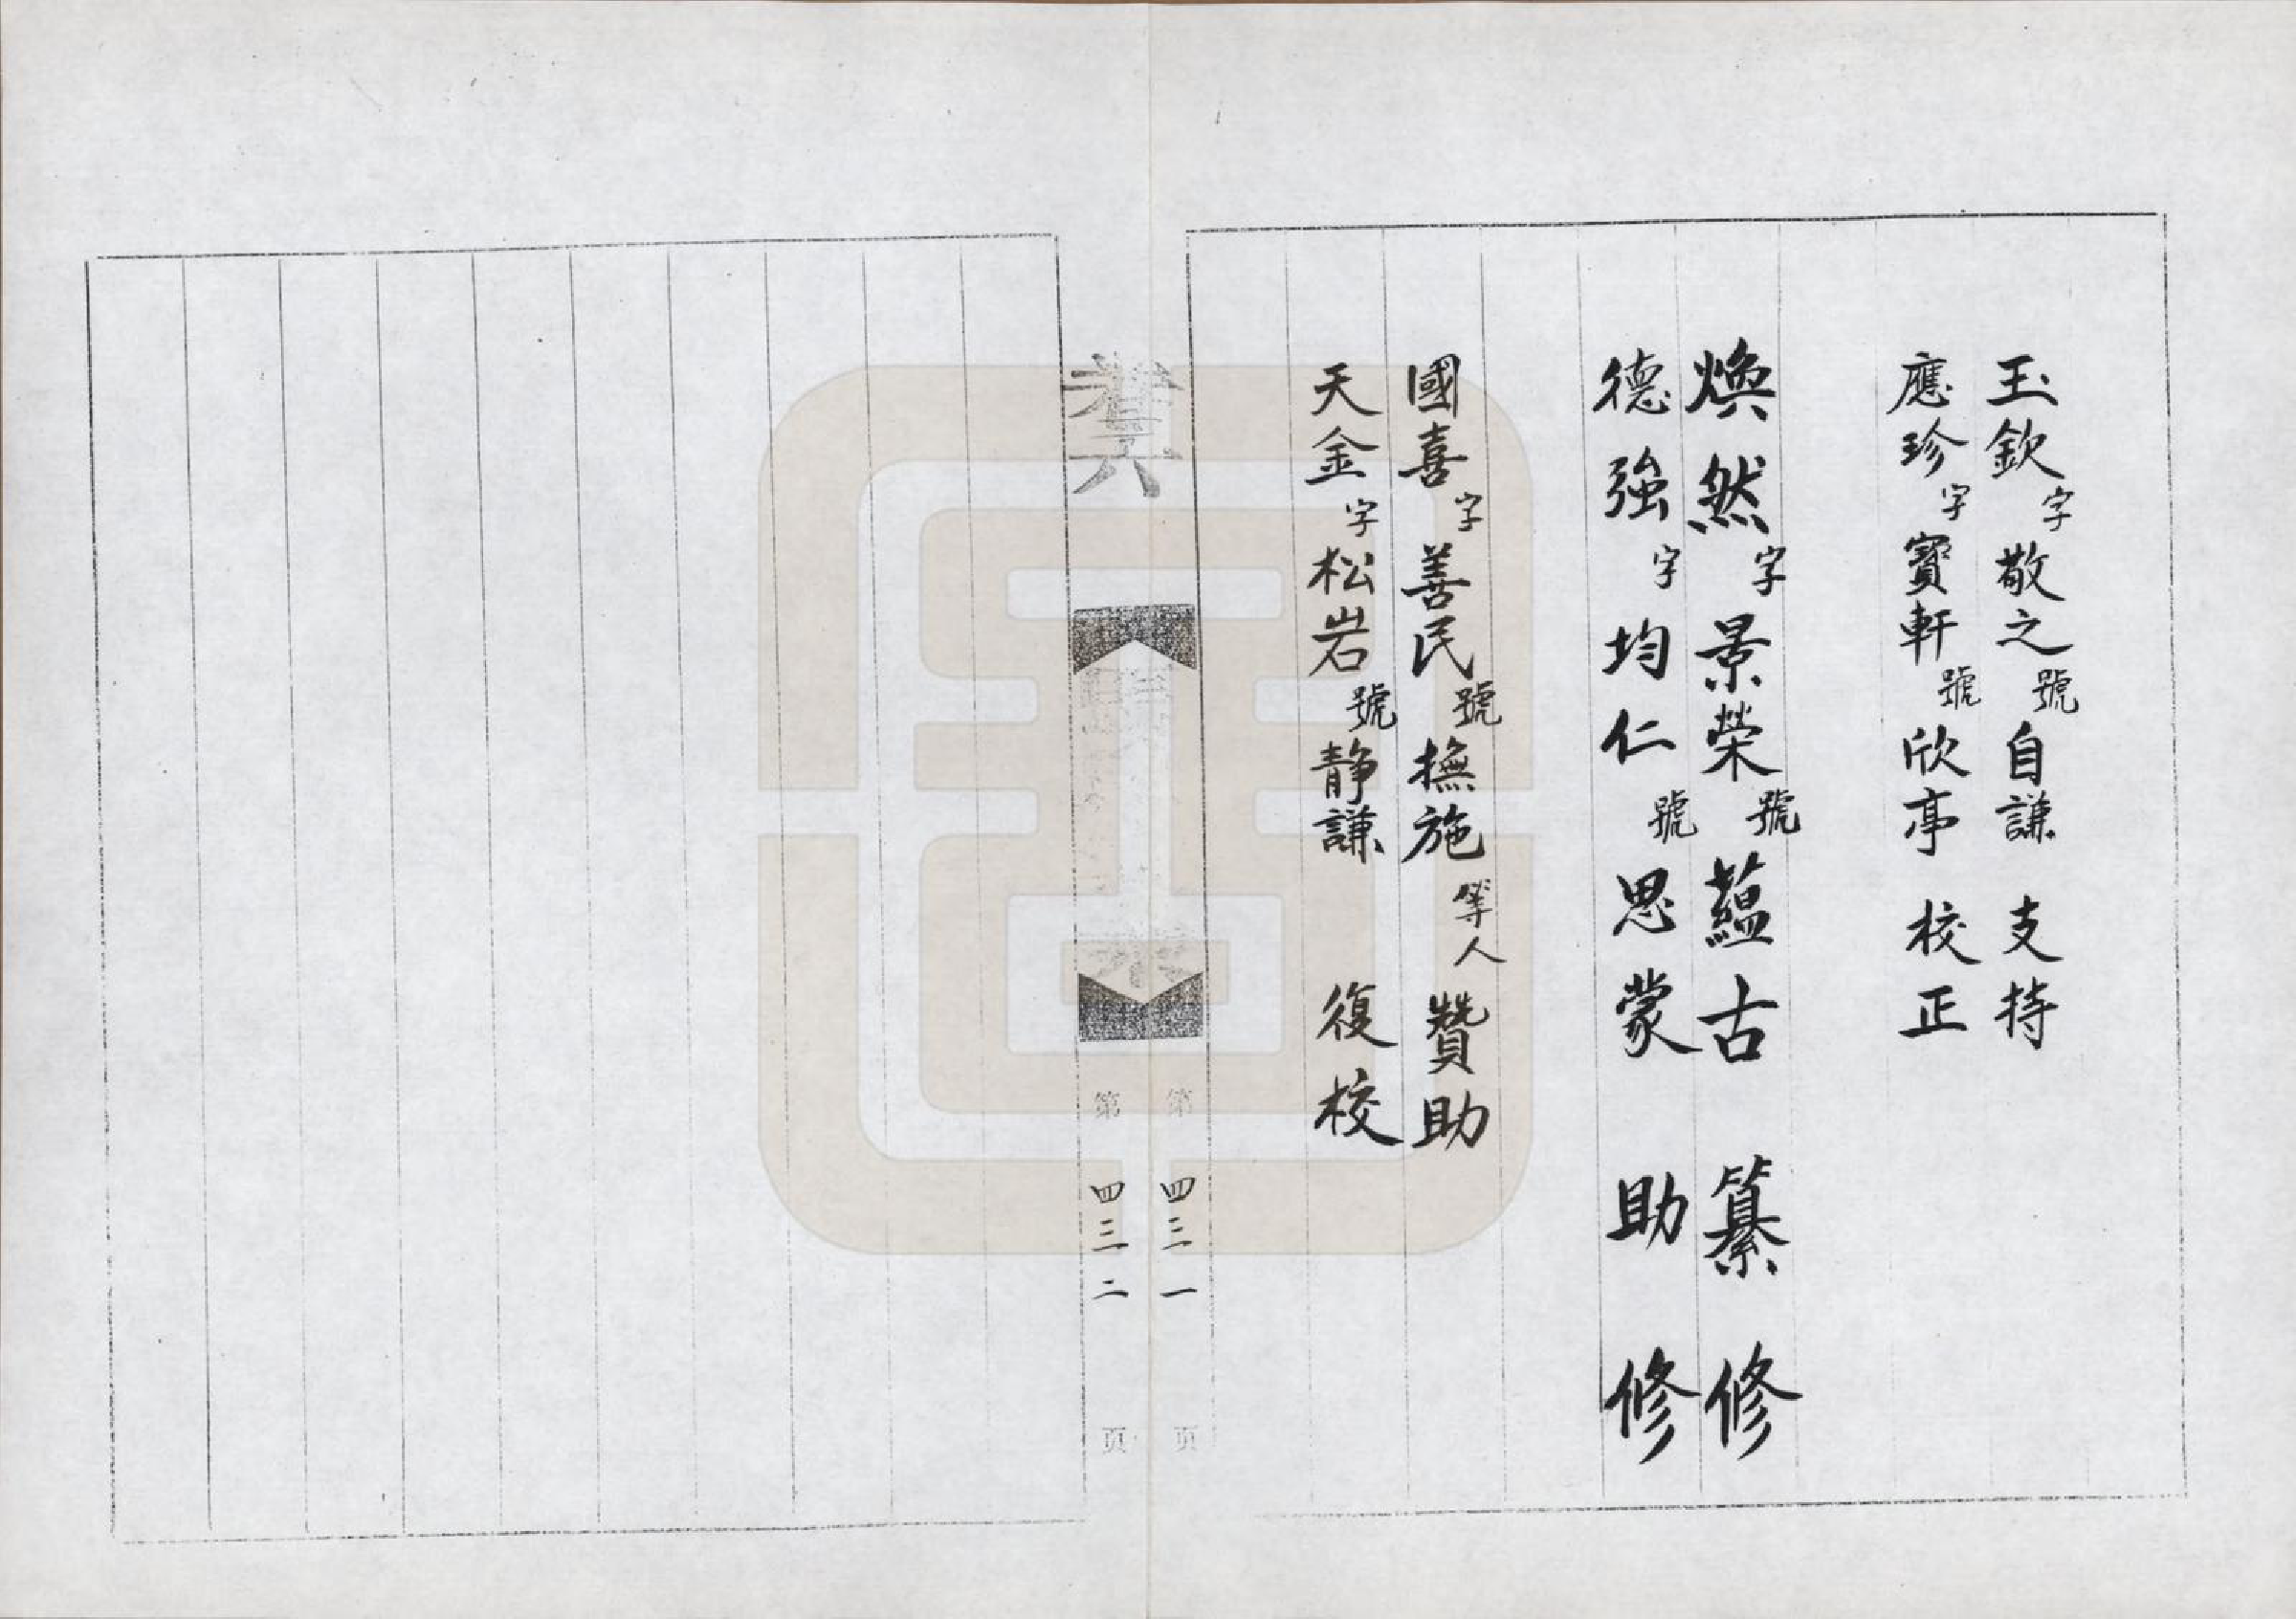 玉欽字敬之號自謙 支持
應珍字寳軒號欣亭 校正
煥然字景榮號蘊古 纂修
德強字均仁號思蒙 助修
國喜字善民號撫施等人 贊助
天金字松岩號静謙 復校
第四三一页
第四三二页